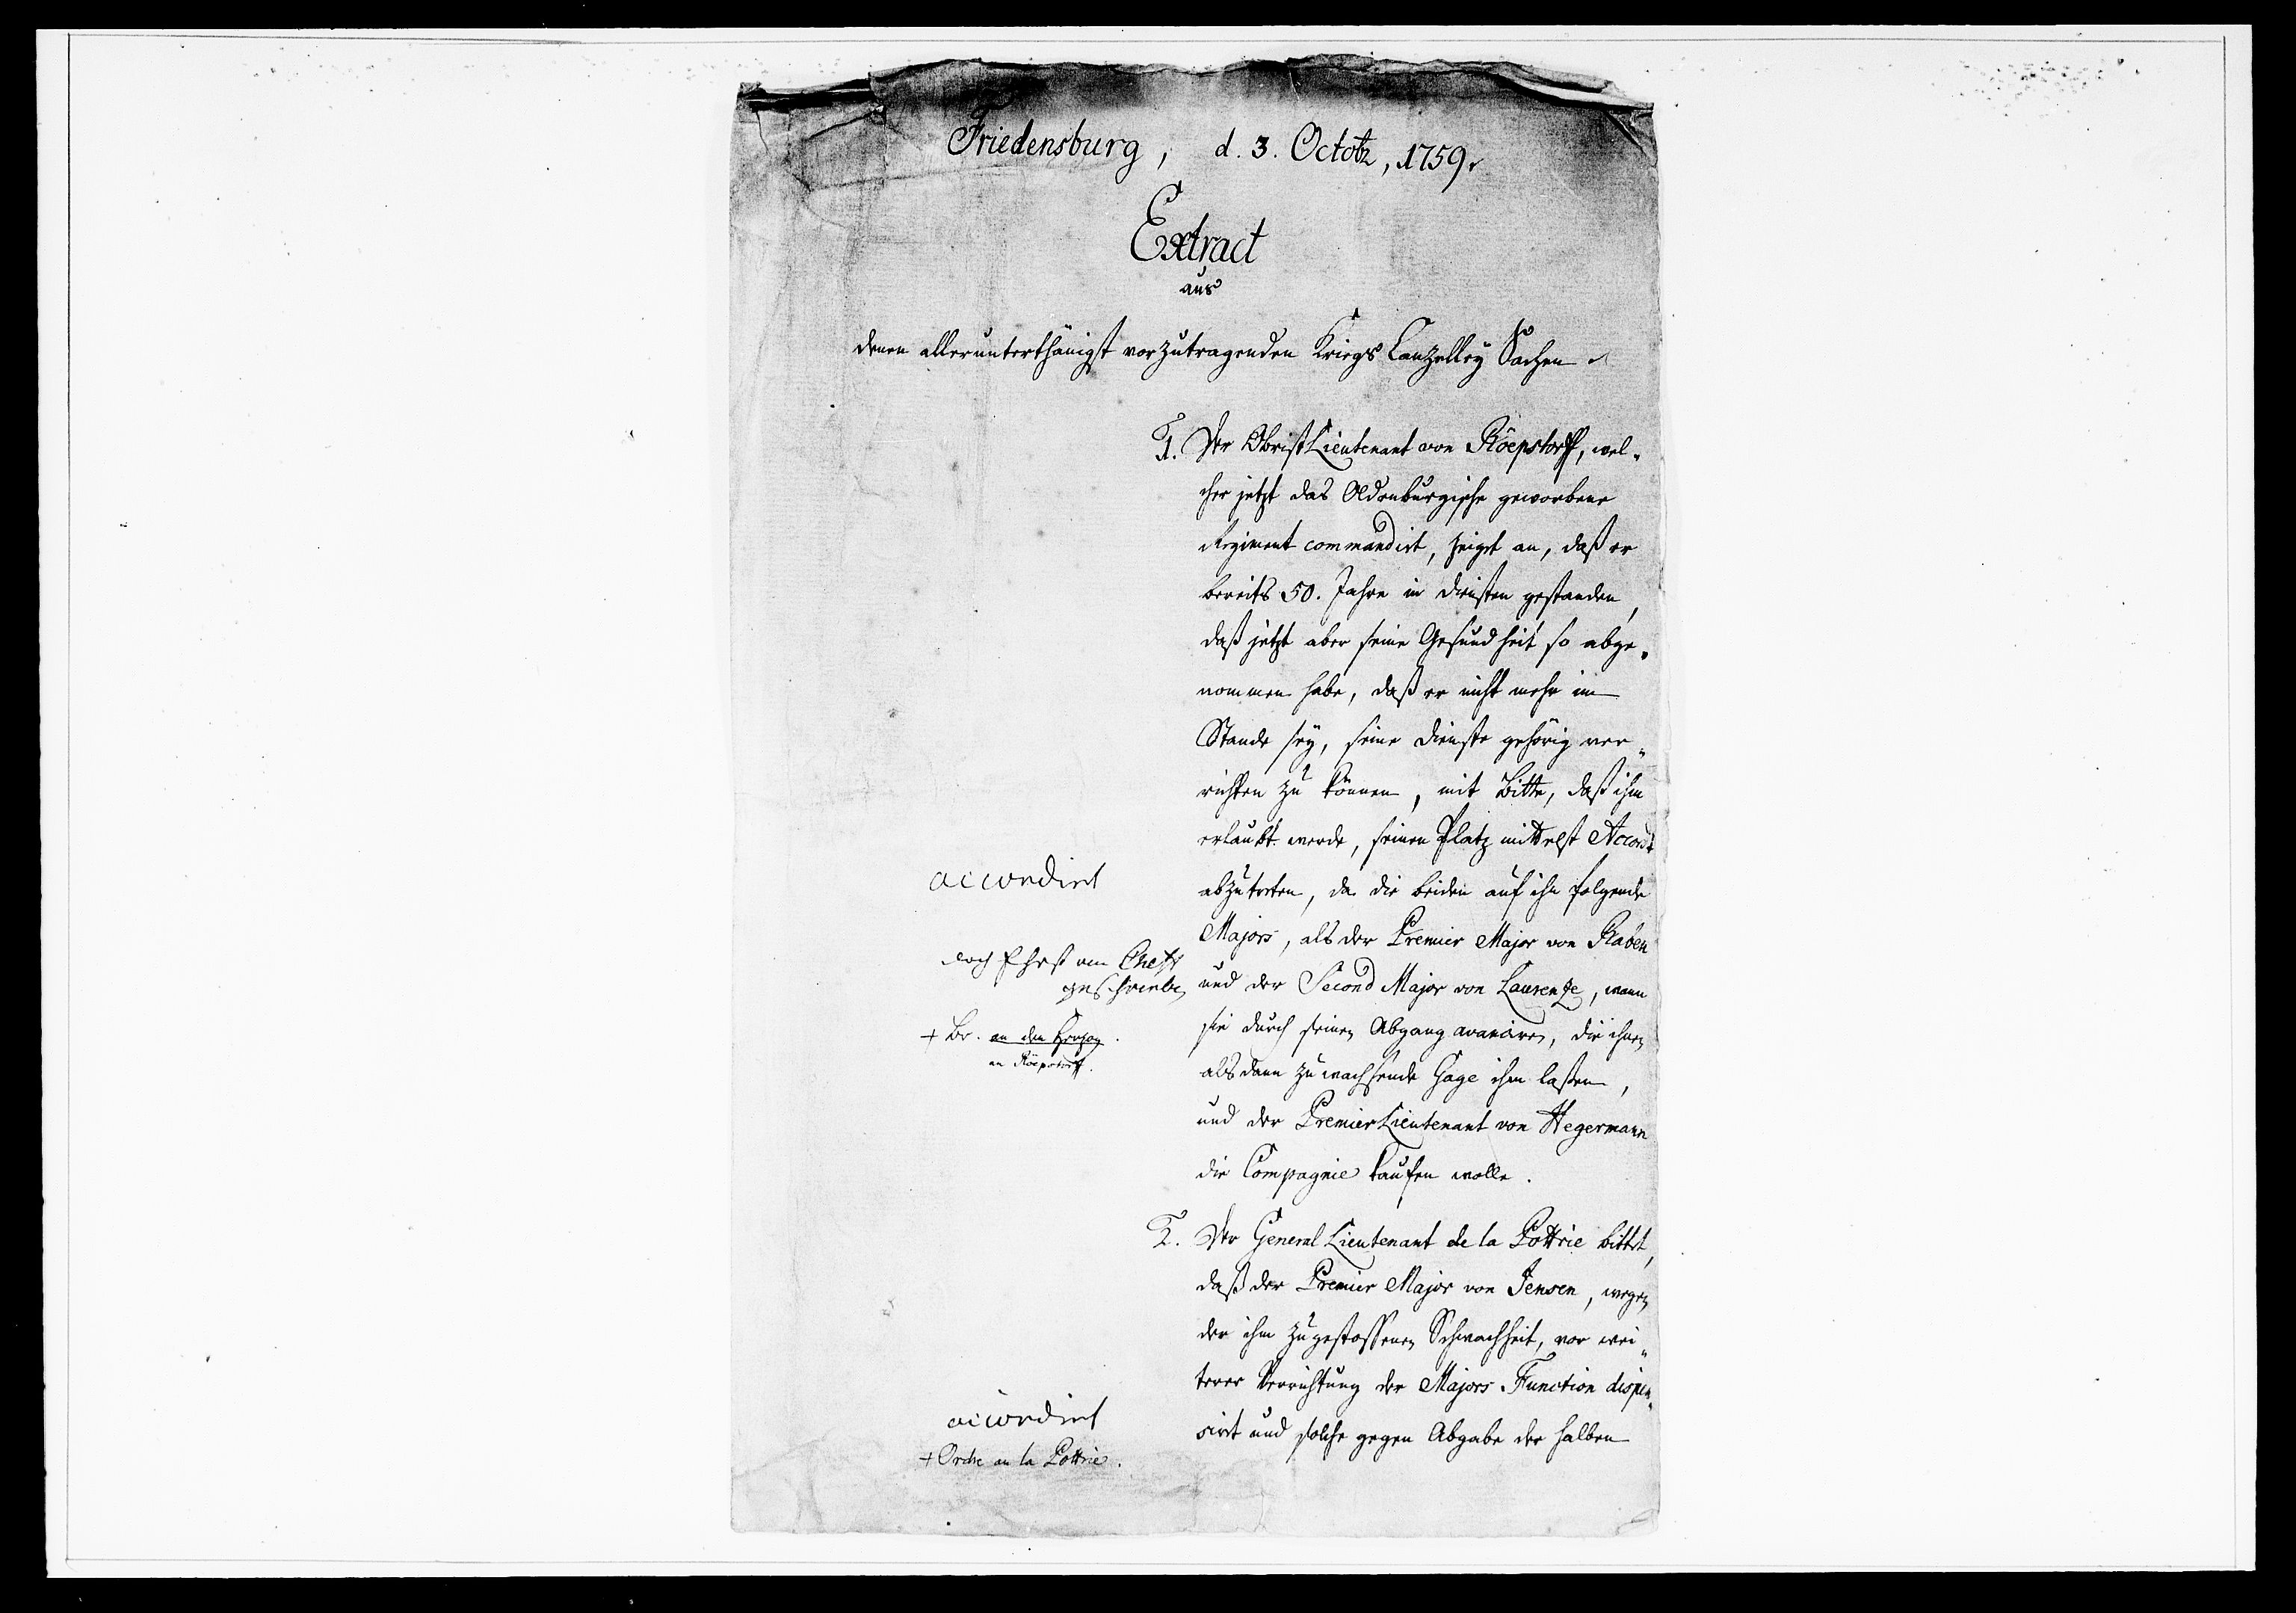 Friedensburg, d. 3. Octobr, 1759.
Extract
aus
denen allerunterthänigst vorzutragenden Kriegs Canzelley Sachen
1. Der ObristLieutenant von Röepstorff, wel-
cher jetzt das Oldenburgische geworbene
Regiment commandirt, zeiget an, daß er
bereits 50. Jahre in Diensten gestanden,
daß jetzt aber seine Gesundheit so abge-
nommen habe, daß er nicht mehr im
Stande sey, seine Dienste gehörig ver-
richten zu können, mit Bitte, daß ihm
erlaubt werde, seinen Platz mittelst Accord
abzutreten, da die beiden auf ihn folgende
Majors, als der Premier Major von Raben
und der Second Major von Laurenze, wann
sie durch seinen Abgang avanciren, die ihnen
alsdann zuwachsende Gage ihm laßen,
und der PremierLieutenant von Hegermann
die Compagnie kaufen wolle.
accordirt
noch erst vom Cheff
geschrieben
+ Br. an den Herzog.
an Röepstorff.
2. Der General Lieutenant de la Pottrie bittet,
daß der Premier Major von Jensen, wegen
der ihm zugestossenen Schwachheit, vor wei-
terer Verrichtung der Majors-Function dispen-
sirt und solche gegen Abgabe der halben
accordirt
+ Ordre an la Pottrie.